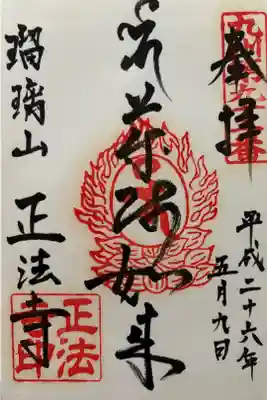 奉拝
平成二十六年
五月九日
薬師如来
瑠璃山 正法寺
正法
寺印